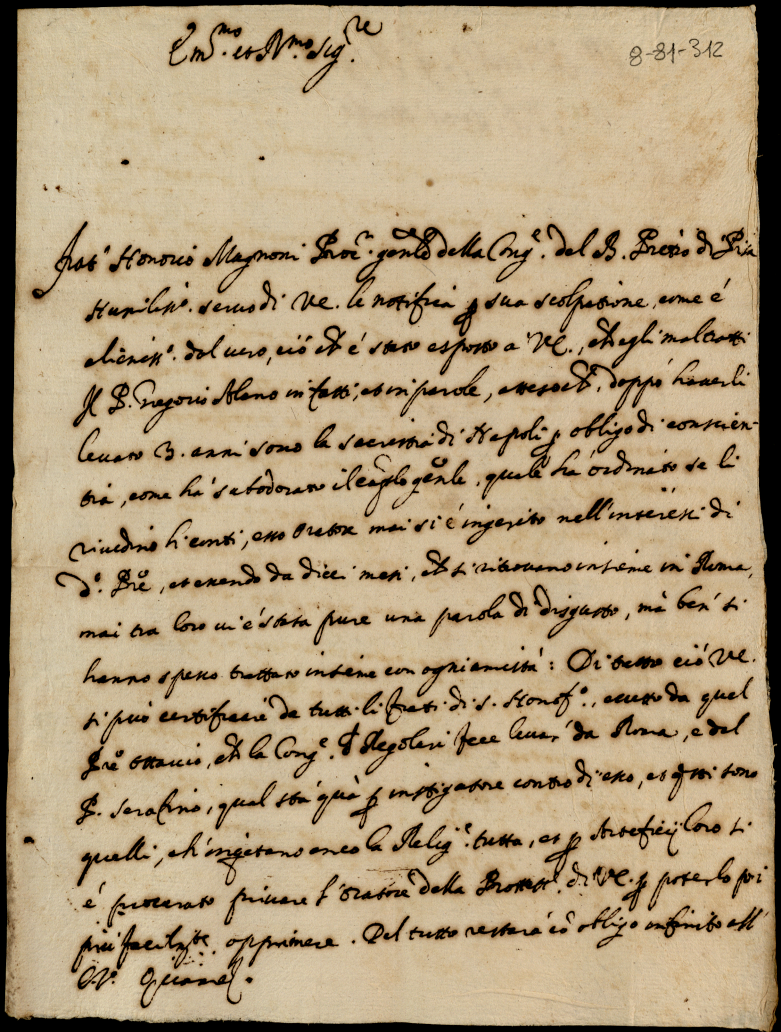 Em.mo et R.mo Sig.re
8-81-312
Frat' Honorio Magnoni Proc.r gen.le della Cong.e del B. Pietro di Pisa
Humiliss.o servo di VE. le notifica p sua scolpatione, come é
alieniss.o dal vero, ciò ch' é stato esposto a VE., ch'egli maltratti
Il P. Gregorio Alano in fatti, et in parole, atteso ch', doppò haverli
levato 3. anni sono la sacrestia di Napoli p obligo di conscien-
tia, come hà subodorato il caplo gnle. quale hà ordinato se li
rivedino li conti, esso oratore mai si é ingerito nell'interessi di
d.o Pre, et essendo da dieci mesi, ch' si ritrovano insieme in Roma,
mai tra loro vi é stata pure una parola di disgusto, mà ben' si
hanno spesso trattato insieme con ogni amicitia: Di tutto ciò VE.
si può certificare da tutti li frati di S. Honof.o, eccetto da quel
Pre Ottavio, ch' la Cong.e d Regolari fece levar' da Roma, e dal
P. Serafino, qual stà quà p instigatore contro di esso, et qsti sono
quelli, ch' inqietano anco la Relig.e tutta, et p Arteficij loro si
é procurato privare l'oratore della Protett.e di VE. p poterlo poi
più facilmte opprimere. Del tutto restarà cò obligo infinito all'
E.V. Quam